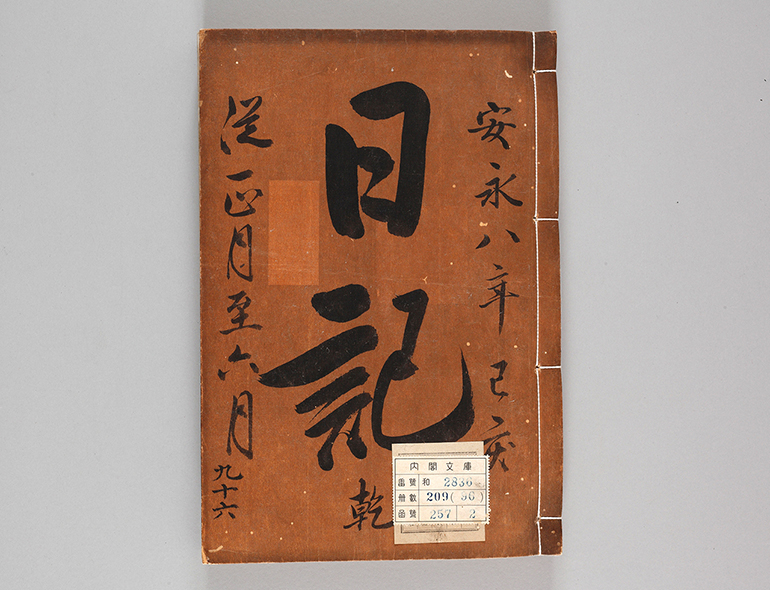 安永八年己亥
日記
乾
従正月至六月
九十六
内閣文庫
番號 和 2836
册數 209(96)
函號 257 2